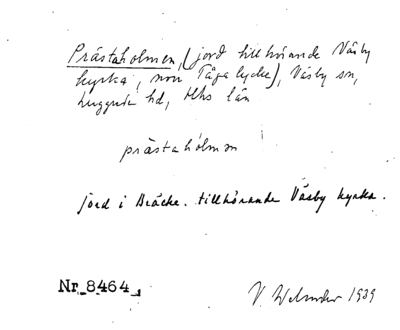 Prästaholmen, (jord tillhörande Väsby
kyrka, nov Tågalycke), Väsby sn,
Luggude hd, Mhs län
prästahólmen
jord i Bräcke. tillhörande Väsby kyrka.
Nr 8464
V. Welander 1939